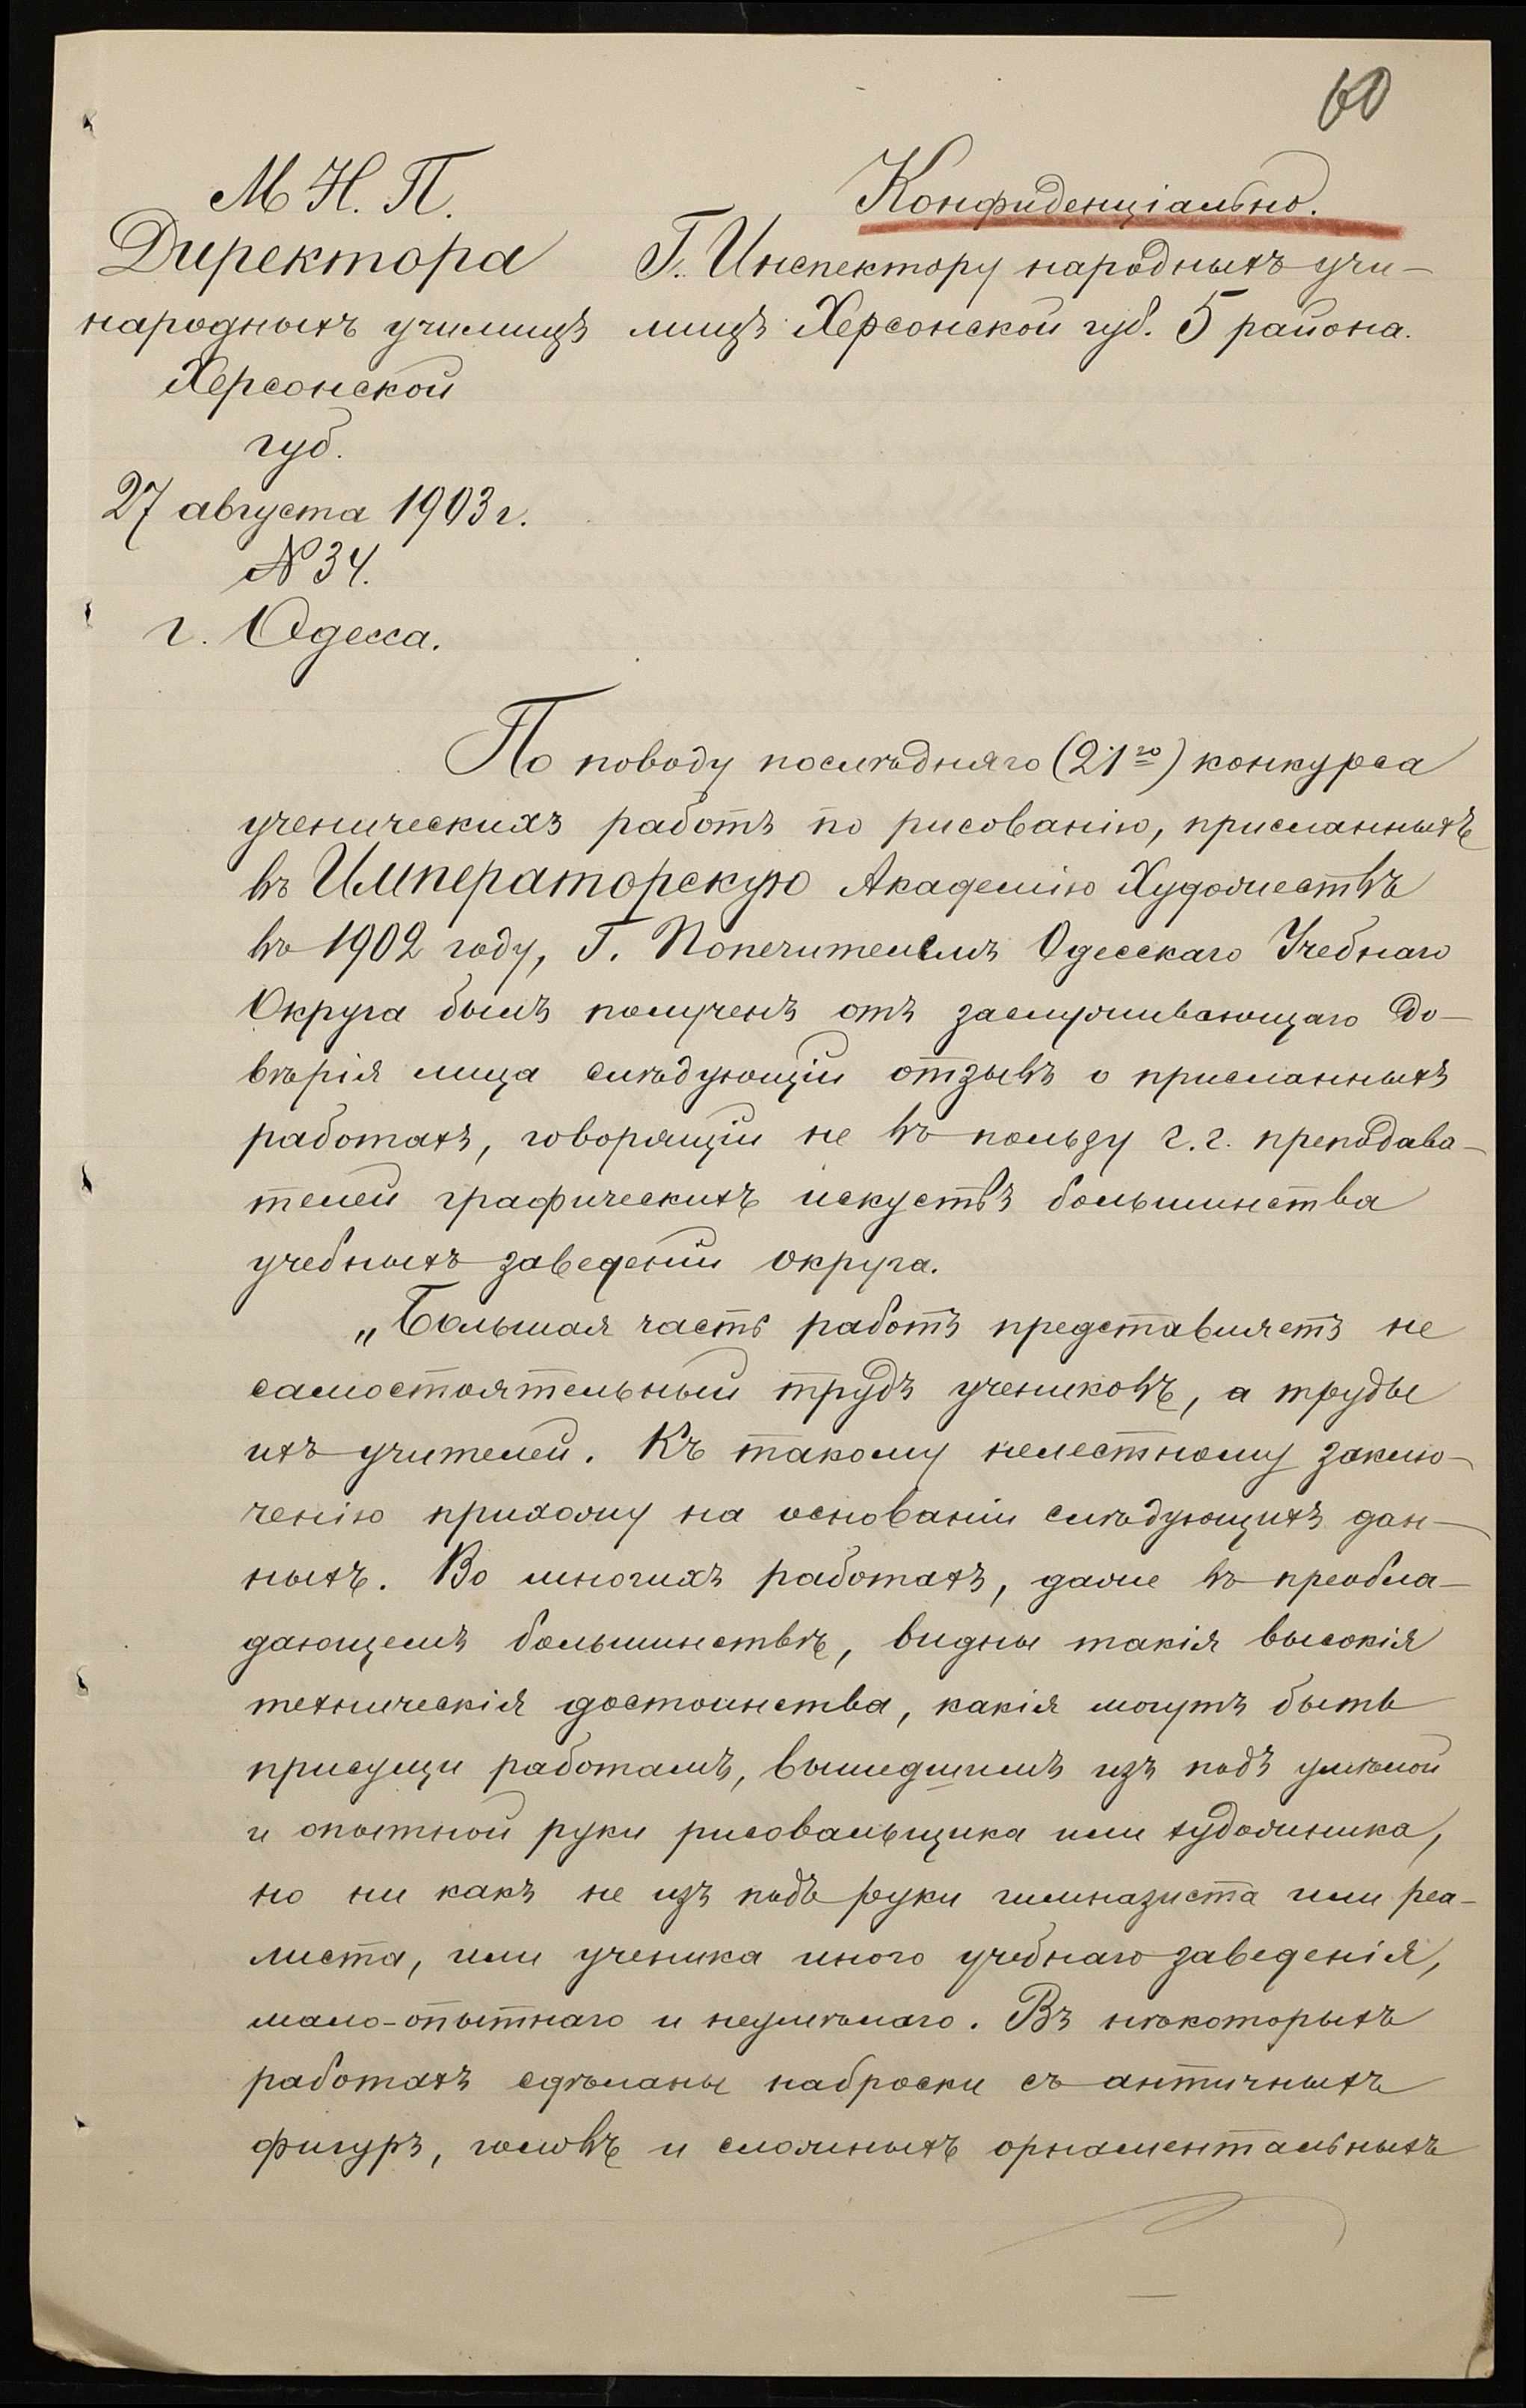 60
М. Н. П.
Директора
народныхъ училищъ
Херсонской
губ.
27 августа 1903 г.
№ 34.
г. Одесса.
Конфиденціально.
Г. Инспектору народныхъ учи-
лищъ Херсонской губ. 5 района.
По поводу послѣдняго (21го) конкурса
ученическихъ работъ по рисованію, присланныхъ
въ Императорскую Академію Художествъ
въ 1902 году, Г. Попечителемъ Одесскаго Учебнаго
Округа былъ полученъ отъ заслуживающаго до-
вѣрія лица слѣдующій отзывъ о присланныхъ
работахъ, говорящій не въ пользу г.г. преподава-
телей графическихъ искуствъ большинства
учебныхъ заведеній округа.
„Большая часть работъ представляетъ не
самостоятельный трудъ учениковъ, а труды
ихъ учителей. Къ такому нелестному заклю-
ченію прихожу на основаніи слѣдующихъ дан-
ныхъ. Во многихъ работахъ, даже въ преобла-
дающемъ большинствѣ, видны такія высокія
техническія достоинства, какія могутъ быть
присущи работамъ, вышедшимъ изъ подъ умѣлой
и опытной руки рисовальщика или художника,
но ни какъ не изъ подъ руки гимназиста или реа-
листа, или ученика иного учебнаго заведенія,
мало-опытнаго и неумѣлаго. Въ нѣкоторыхъ
работахъ сдѣланы наброски съ античныхъ
фигуръ, головъ и сложныхъ орнаментальныхъ